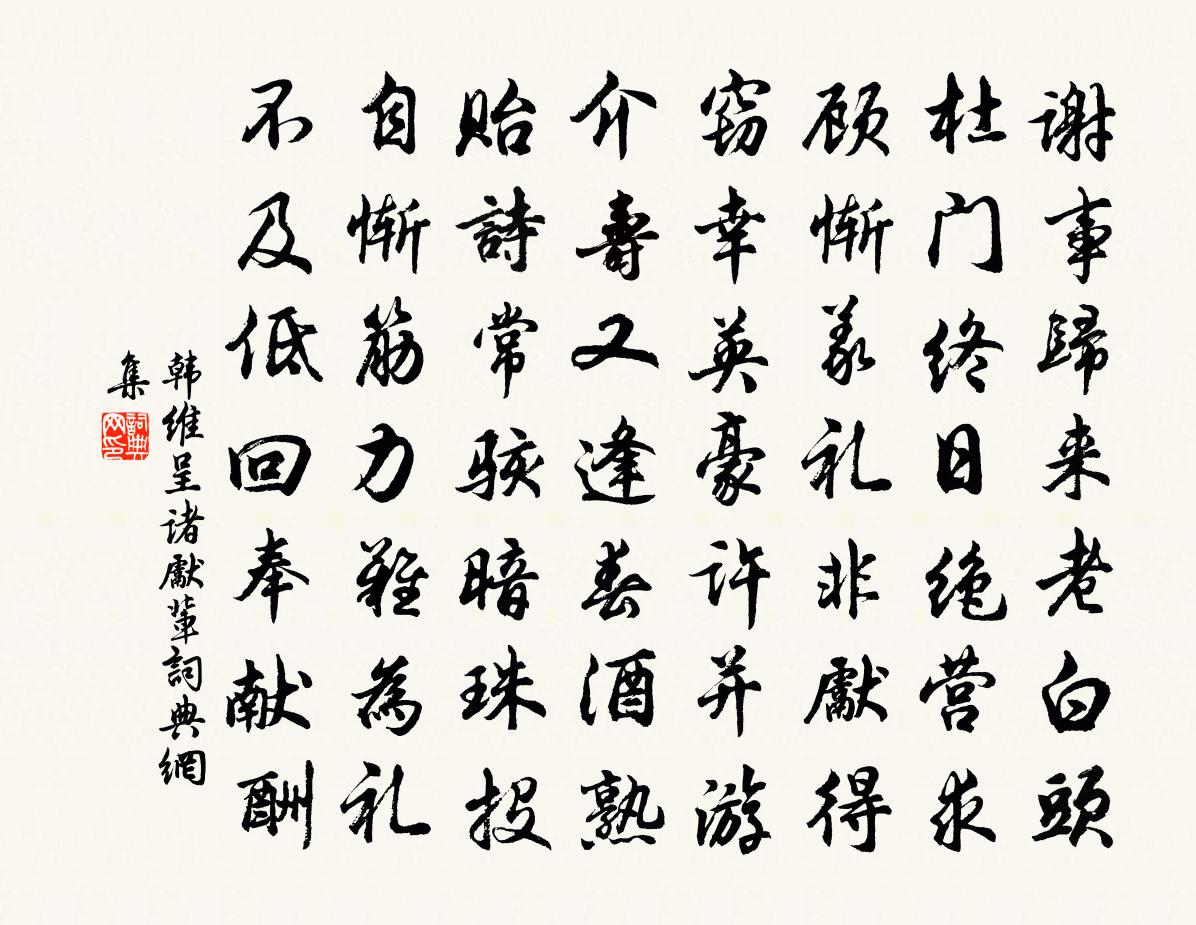 谢事歸来老白頭
杜门终日绝营求
顾惭养礼非獻得
窃幸英豪许并游
介壽又逢春酒熟
贻詩常骇暗珠投
自惭筋力難為礼
不及低回奉献酬
韩维呈诸獻輩詞典網
集
詞典网印